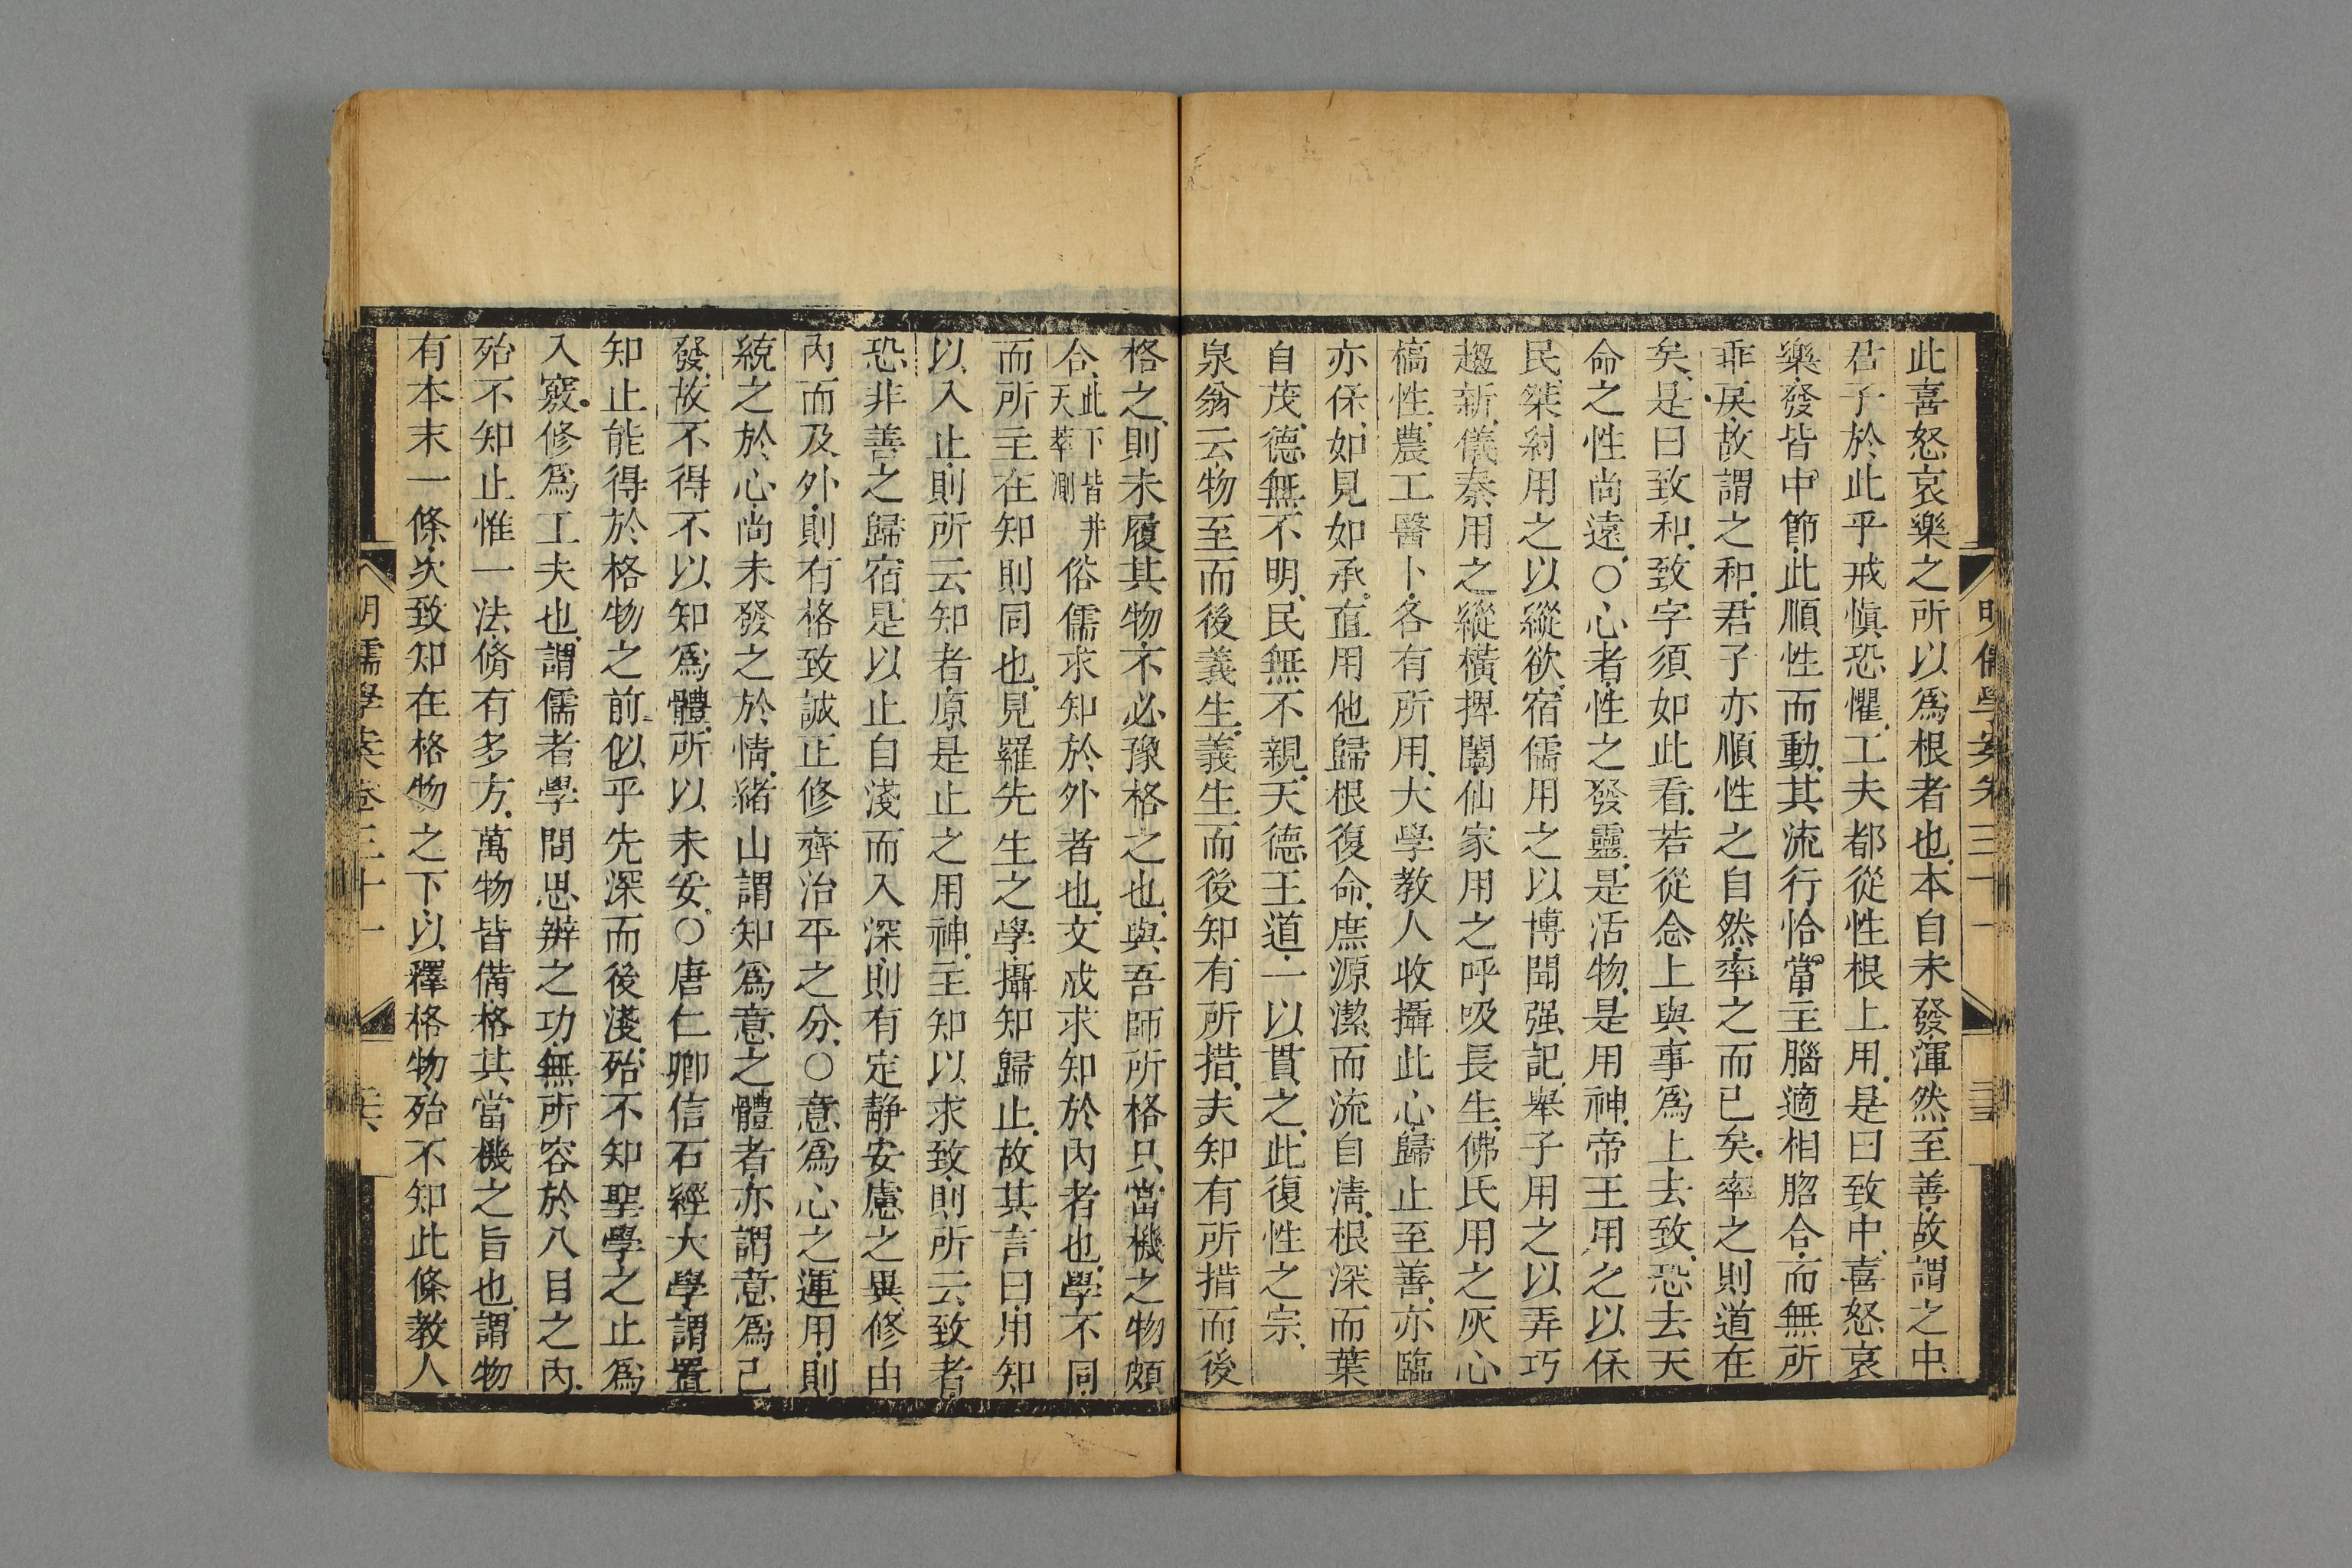 明儒學案卷三十一
此喜怒哀樂之所以爲根者也本自未發渾然至善故謂之中
君子於此乎戒愼恐懼工夫都從性根上用是曰致中喜怒哀
樂發皆中節此順性而動其流行恰當主腦適相脗合而無所
乖戾故謂之和君子亦順性之自然率之而已矣率之則道在
矣是曰致和致字須如此看若從念上與事爲上去致恐去天
命之性尚遠○心者性之發靈是活物是用神帝王用之以保
民桀紂用之以縱欲宿儒用之以博聞强記舉子用之以弄巧
趨新儀秦用之縱橫捭闔仙家用之呼吸長生佛氏用之灰心
槁性農工醫卜各有所用大學教人收攝此心歸止至善亦臨
亦保如見如承直用他歸根復命庶源潔而流自淸根深而葉
自茂德無不明民無不親天德王道一以貫之此復性之宗
泉翁云物至而後義生義生而後知有所措夫知有所措而後
格之則未履其物不必豫格之也與吾師所格只當機之物頗
合此下皆井天萃測俗儒求知於外者也文成求知於內者也學不同
而所主在知則同也見羅先生之學攝知歸止故其言曰用知
以入止則所云知者原是止之用神主知以求致則所云致者
恐非善之歸宿是以止自淺而入深則有定靜安慮之異修由
內而及外則有格致誠正修齊治平之分○意爲心之運用則
統之於心尚未發之於情緖山謂知爲意之體者亦謂意爲己
發故不得不以知爲體所以未妥○唐仁卿信石經大學謂置
知止能得於格物之前似乎先深而後淺殆不知聖學之止爲
入竅修爲工夫也謂儒者學問思辨之功無所容於八目之內
殆不知止惟一法脩有多方萬物皆備格其當機之旨也謂物
有本末一條次致知在格物之下以釋格物殆不知此條教人
明儒學案卷三十一